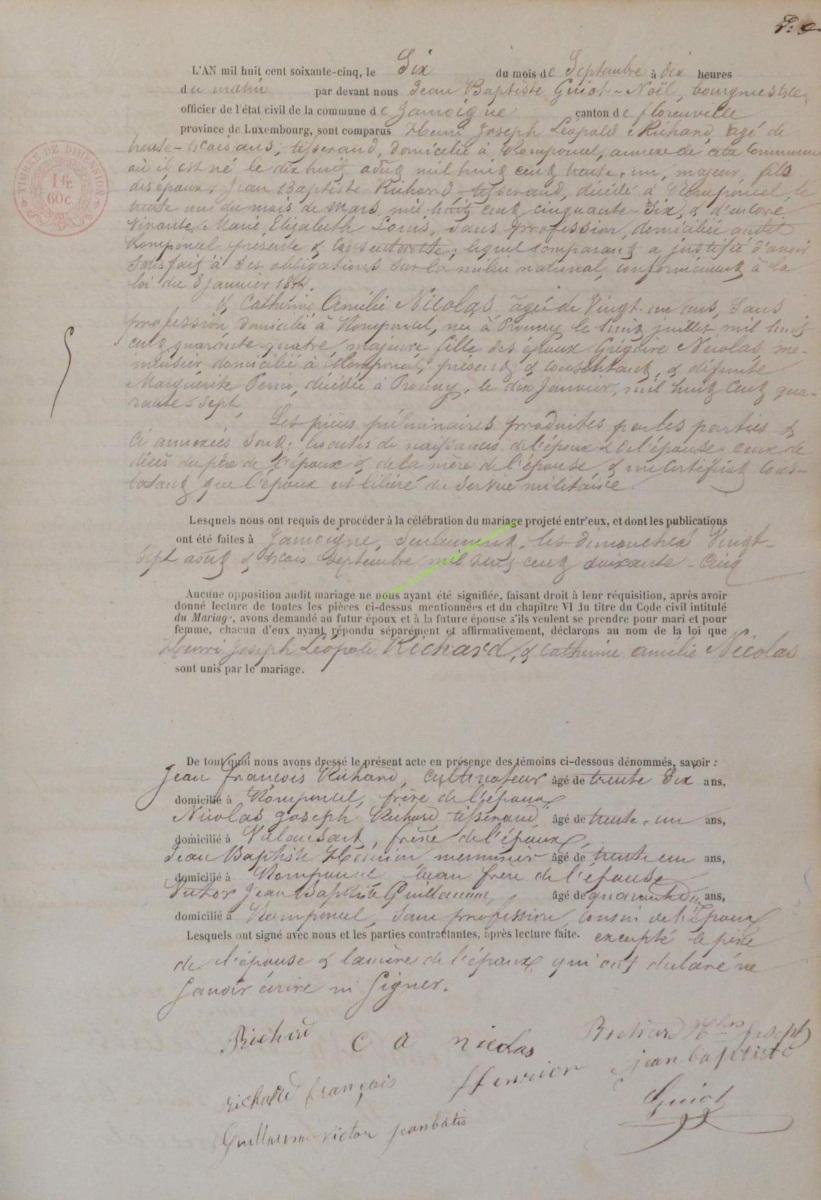 L'AN mil huit cent soixante-cinq, le Six du mois de Septembre à dix heures
du matin par devant nous Jean Baptiste Guiot-Noël, bourgmestre
officier de l'état civil de la commune de Jamoigne canton de florenville
province de Luxembourg, sont comparus Henri Joseph Léopold Richard, agé de
trente-trois ans, tisserand, domicilié à Romponcel, annexe de cette Commune
où il est né le dix huit août mil huit cent trente-un, majeur, fils
des époux, Jean Baptiste Richard tisserand, décédé à Romponcel le
trente un du mois de Mars mil huit cent cinquante-Six, & d'encore
vivante, Marie Elisabeth Louis, Sans profession, domiciliée audit
Romponcel présente & consentante; lequel comparant a justifié d'avoir
Satisfait à Ses obligations Sur la milice national, conformément à la
loi du 8 janvier
& Catherine Amélie Nicolas, agée de Vingt un ans, Sans
profession domicilié à Romponcel, née à Prouvy le juillet mil huit
cent quarante quatre, majeure fille des époux Grégoire Nicolas me-
nuisier domicilié à Romponcel, présent & Consentant, & défunte
Marguerite décédée à Prouvy, le dix Janvier, mil huit cent qua-
rante-Sept.
Les pièces préliminaires produites par les parties &
Ci annexées Sont: les actes de naissances de l'époux & de l'épouse, ceux de
décès du père de l'époux & de la mère de l'épouse & un Certificat Cons-
tatant que l'époux est libéré du Service militaire.
Lesquels nous ont requis de procéder à la célébration du mariage projeté entr'eux, et dont les publications
ont été faites à Jamoigne, Seulement, les dimanches Vingt-
Sept août & trois Septembre mil huit cent Soixante-Cinq
Aucune opposition audit mariage ne nous ayant été signifiée, faisant droit à leur réquisition, après avoir
donné lecture de toutes les pièces ci-dessus mentionnées et du chapitre VI du titre du Code civil intitulé
du Mariage, avons demandé au futur époux et à la future épouse s'ils veulent se prendre pour mari et pour
femme, chacun d'eux ayant répondu séparément et affirmativement, déclarons au nom de la loi que
Henri Joseph Léopold Richard, & Catherine amélie Nicolas
sont unis par le mariage.
De tout quoi nous avons dressé le présent acte en présence des témoins ci-dessous dénommés, savoir :
Jean françois Richard, Cultivateur âgé de trente Six ans,
domicilié à Romponcel, frère de l'époux
Nicolas Joseph Richard tisserand, âgé de trente-un ans,
domicilié à Valansart, frère de l'époux,
Jean Baptiste Henrion menuisier âgé de trente un ans,
domicilié à Romponcel beau frère de l'épouse
Victor Jean Baptiste Guillaume, âgé de ans,
domicilié à Romponcel, Sans profession Cousin de l'Epoux
Lesquels ont signé avec nous et les parties contractantes, après lecture faite. excepté le père
de l'épouse & la mère de l'époux, qui ont déclaré ne
Savoir écrire ni Signer.
Richard C a nicolas Richard Nlas joseph
richard françois Henrion jean baptiste
Guillaume victor jeanbatis Guiot
TIMBRE DE DIMENSION
1 fr.
60 c.